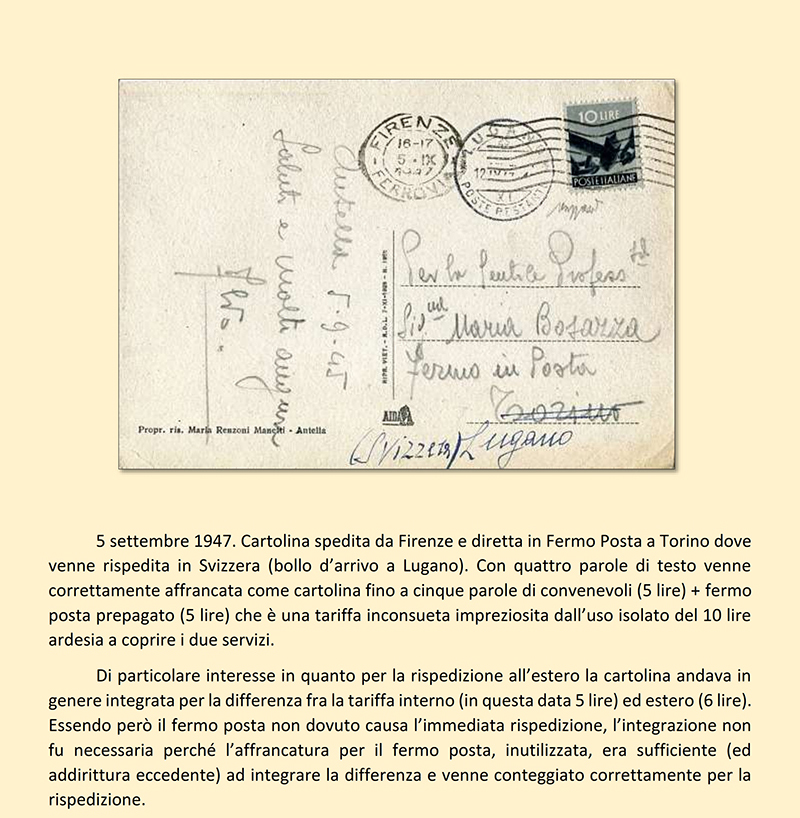 FIRENZE
16-17
5 · IX
1947
FERROVIA
LUGANO
POSTE RESTANTE
10 LIRE
POSTE ITALIANE
Antella 5-9-45
Saluti e molti auguri
RIPR. VIET. - R.D.L. 7-XI-1925 - N. 1950
Per la Gentile Profess
Sig.na Maria Bosazza
Fermo in Posta
Torino
(Svizzera) Lugano
Propr. ris. Maria Renzoni Manetti - Antella
5 settembre 1947. Cartolina spedita da Firenze e diretta in Fermo Posta a Torino dove
venne rispedita in Svizzera (bollo d’arrivo a Lugano). Con quattro parole di testo venne
correttamente affrancata come cartolina fino a cinque parole di convenevoli (5 lire) + fermo
posta prepagato (5 lire) che è una tariffa inconsueta impreziosita dall’uso isolato del 10 lire
ardesia a coprire i due servizi.
Di particolare interesse in quanto per la rispedizione all’estero la cartolina andava in
genere integrata per la differenza fra la tariffa interno (in questa data 5 lire) ed estero (6 lire).
Essendo però il fermo posta non dovuto causa l’immediata rispedizione, l’integrazione non
fu necessaria perché l’affrancatura per il fermo posta, inutilizzata, era sufficiente (ed
addirittura eccedente) ad integrare la differenza e venne conteggiato correttamente per la
rispedizione.